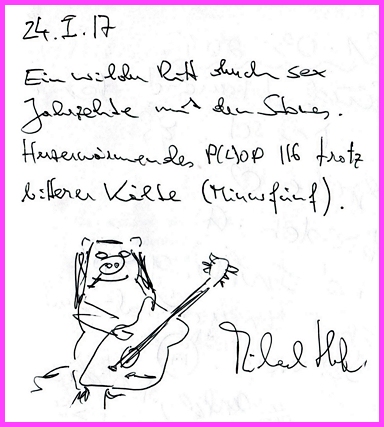 24.I.17
Ein wilder Ritt durch sex
Jahrzehnte mit den Stones.
Herzerwärmendes P(L)OP 116 trotz
bitterer Kälte (Minusfünf).
Michael